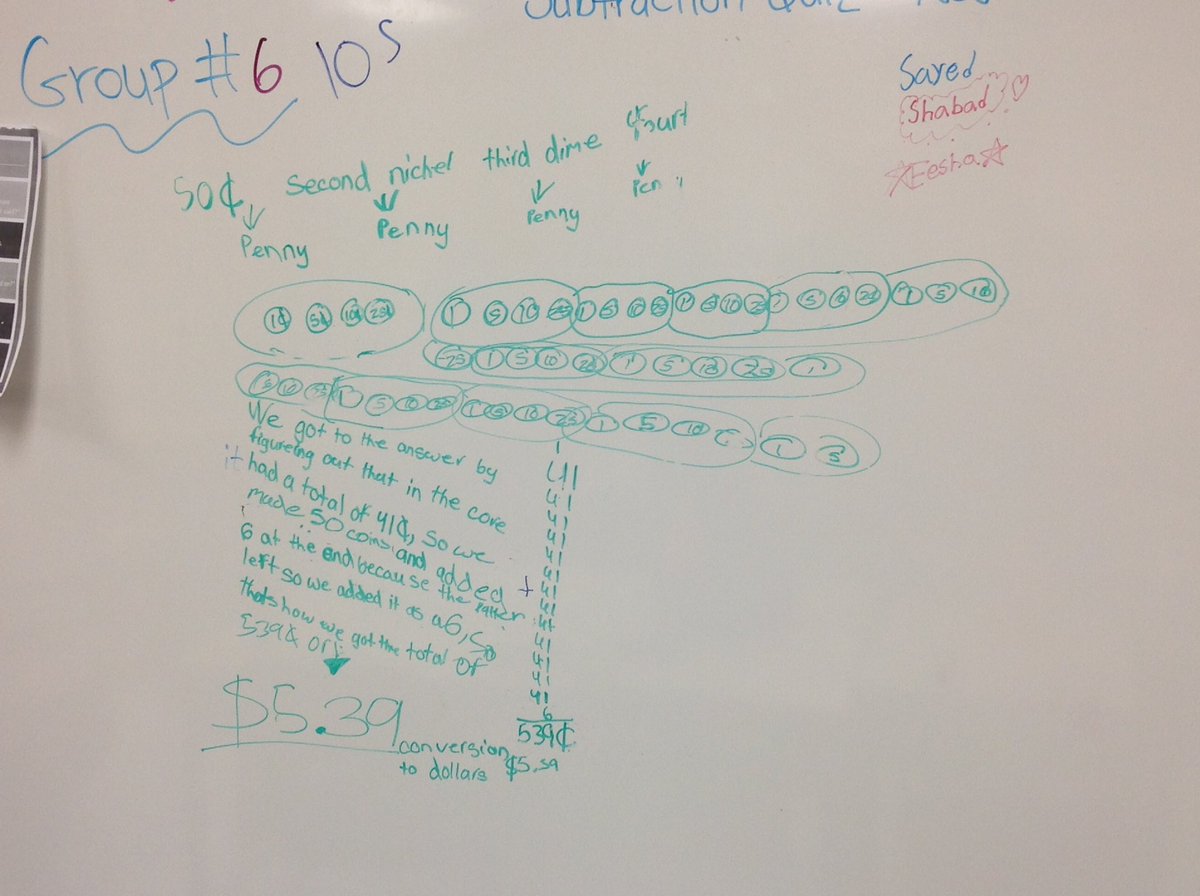 Subtraction Quiz
Group #6 10s
Sayed
Shabad
Eesha
50¢ second nickel third dime fourt
Penny Penny Penny Pen
1¢ 5¢ 10¢ 25¢ 1 5 10 25 1 5 10 25 1 5 10 25 1 5 10 25 1 5 10
25 1 5 10 25 1 5 10 25 1
5 10 25 1 5 10 25 1 5 10 25 1 5 10 1 5
We got to the answer by
figureing out that in the core
it had a total of 41¢, so we
made 50 coins and added
6 at the end because the patter
left so we added it as a 6, so
thats how we got the total of
539¢ or
$5.39
1
41
41
41
41
41
41
+ 41
41
41
41
41
41
41
6
539¢
conversion
to dollars $5.39